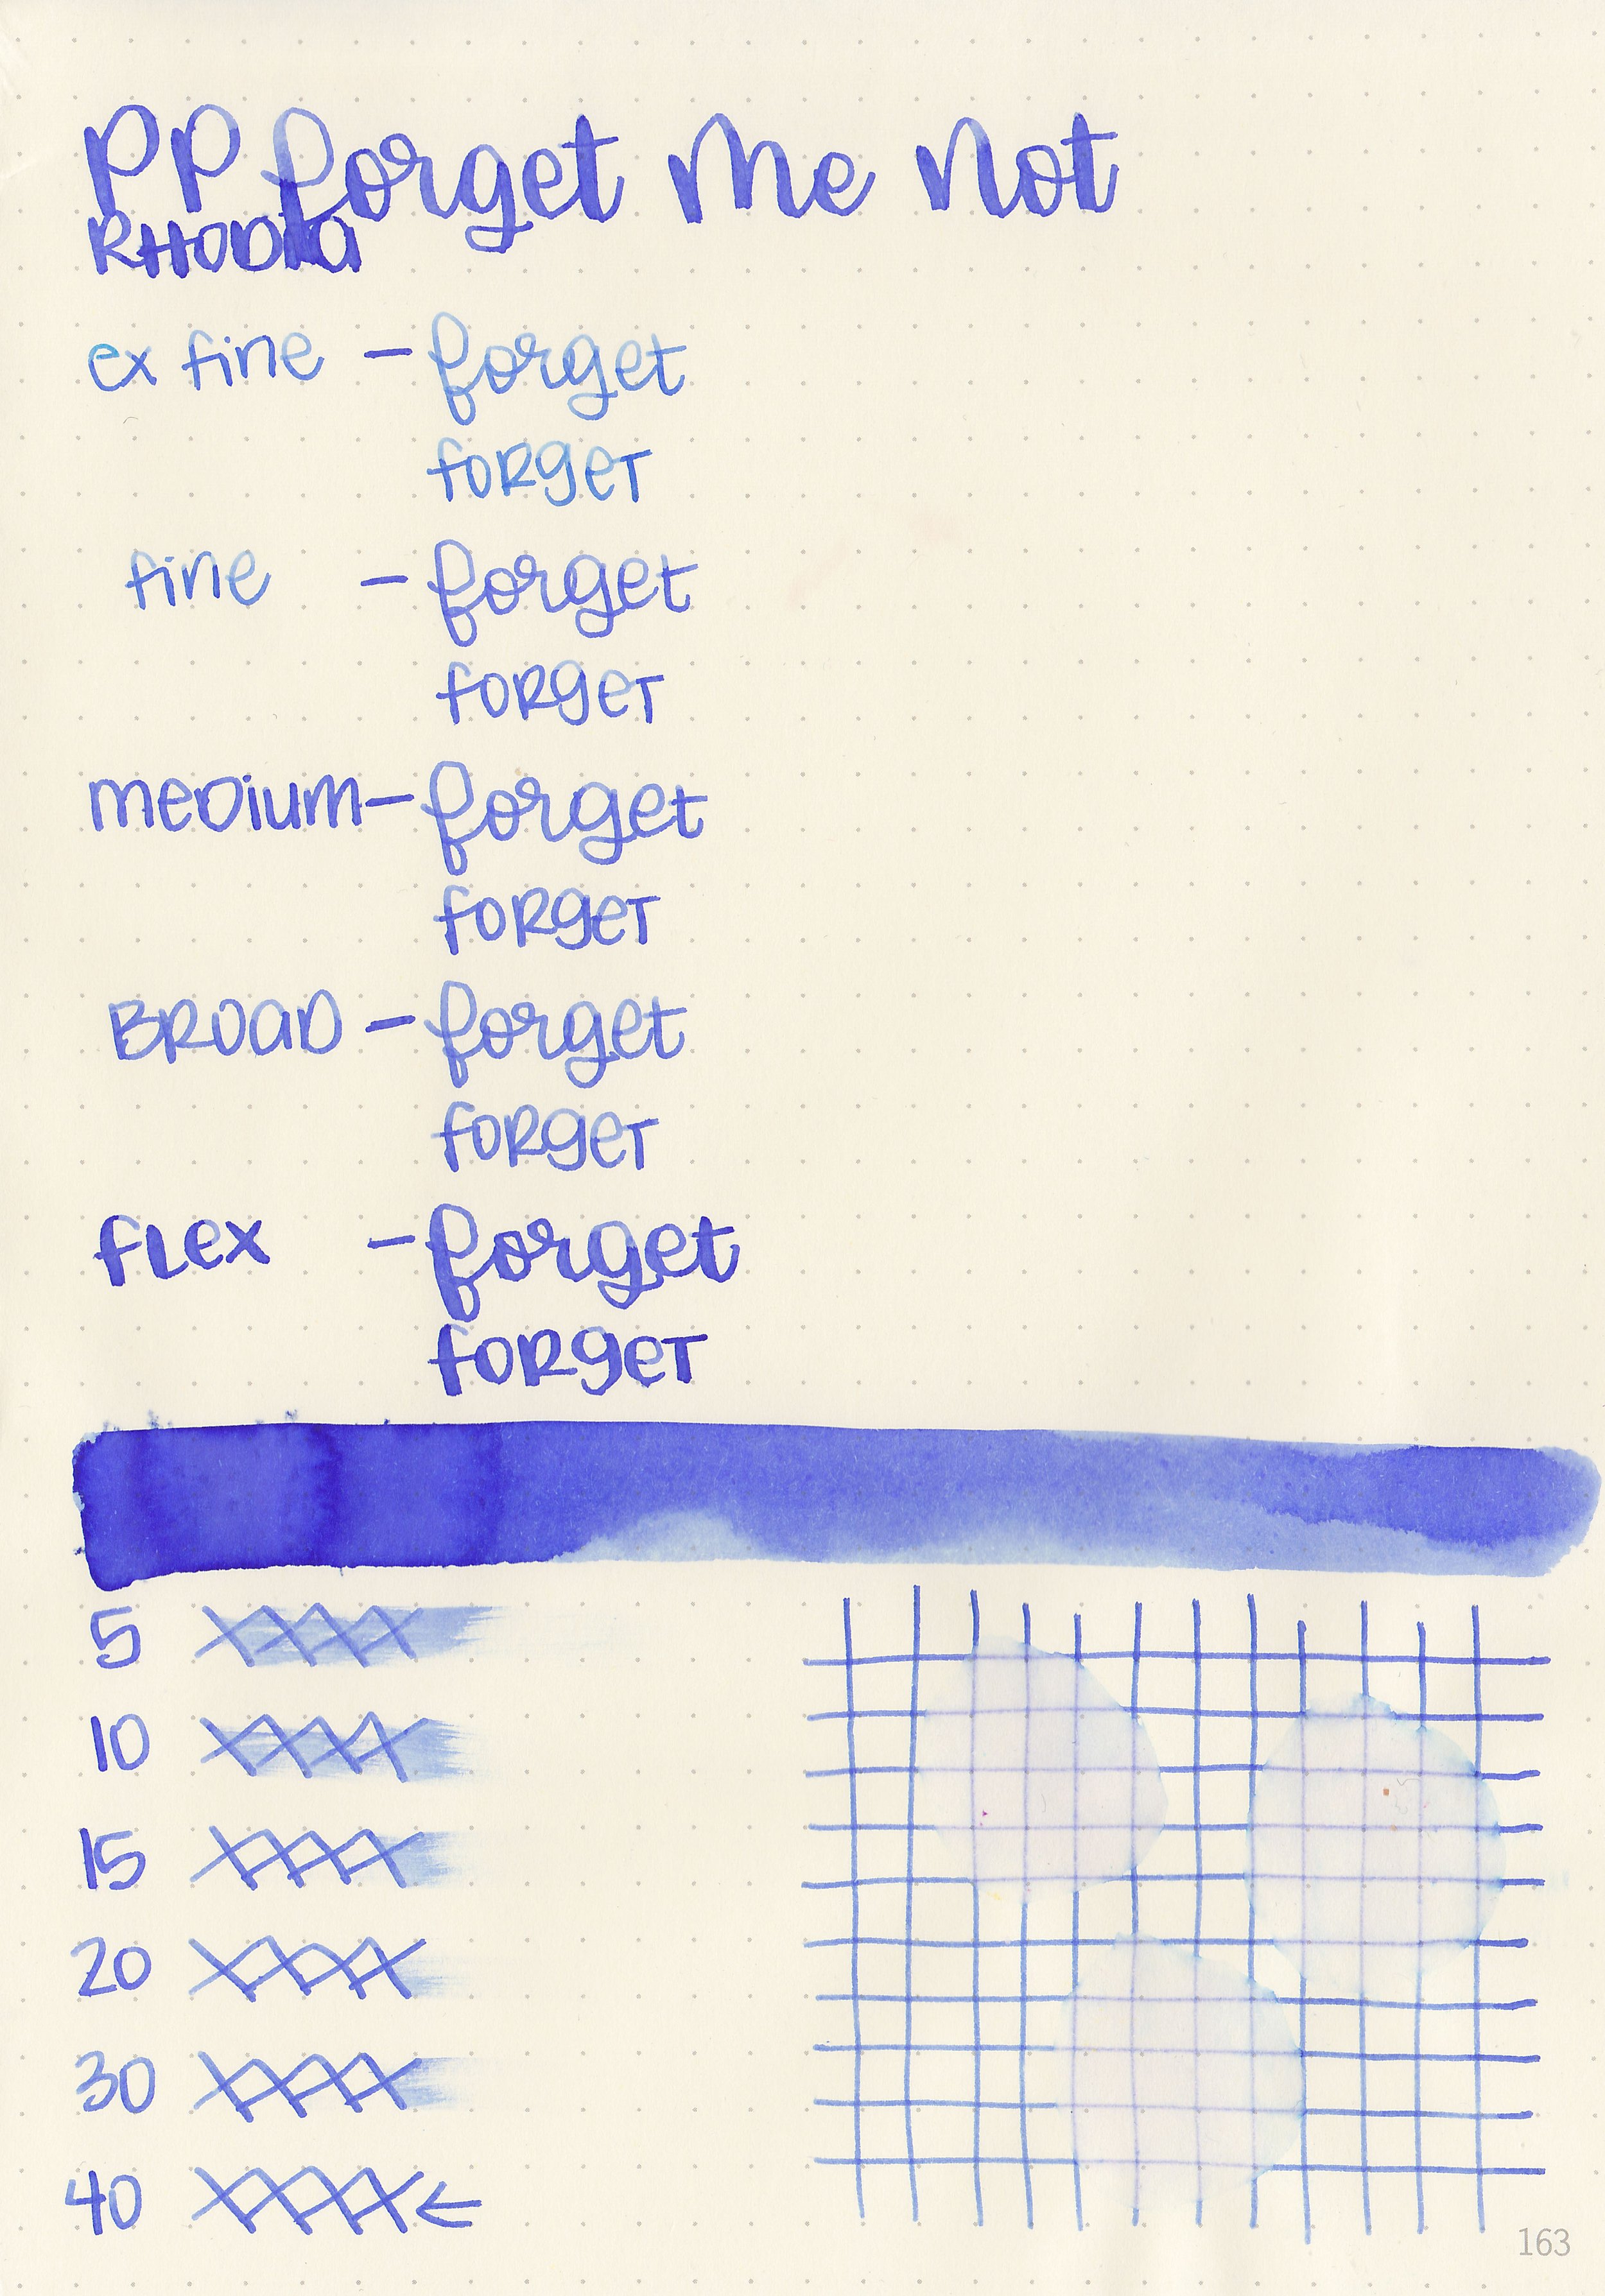 PP forget me not
RHODIA
ex fine - forget
forget
fine - forget
forget
medium - forget
forget
BROAD - forget
forget
flex - forget
forget
5
10
15
20
30
40 ←
163